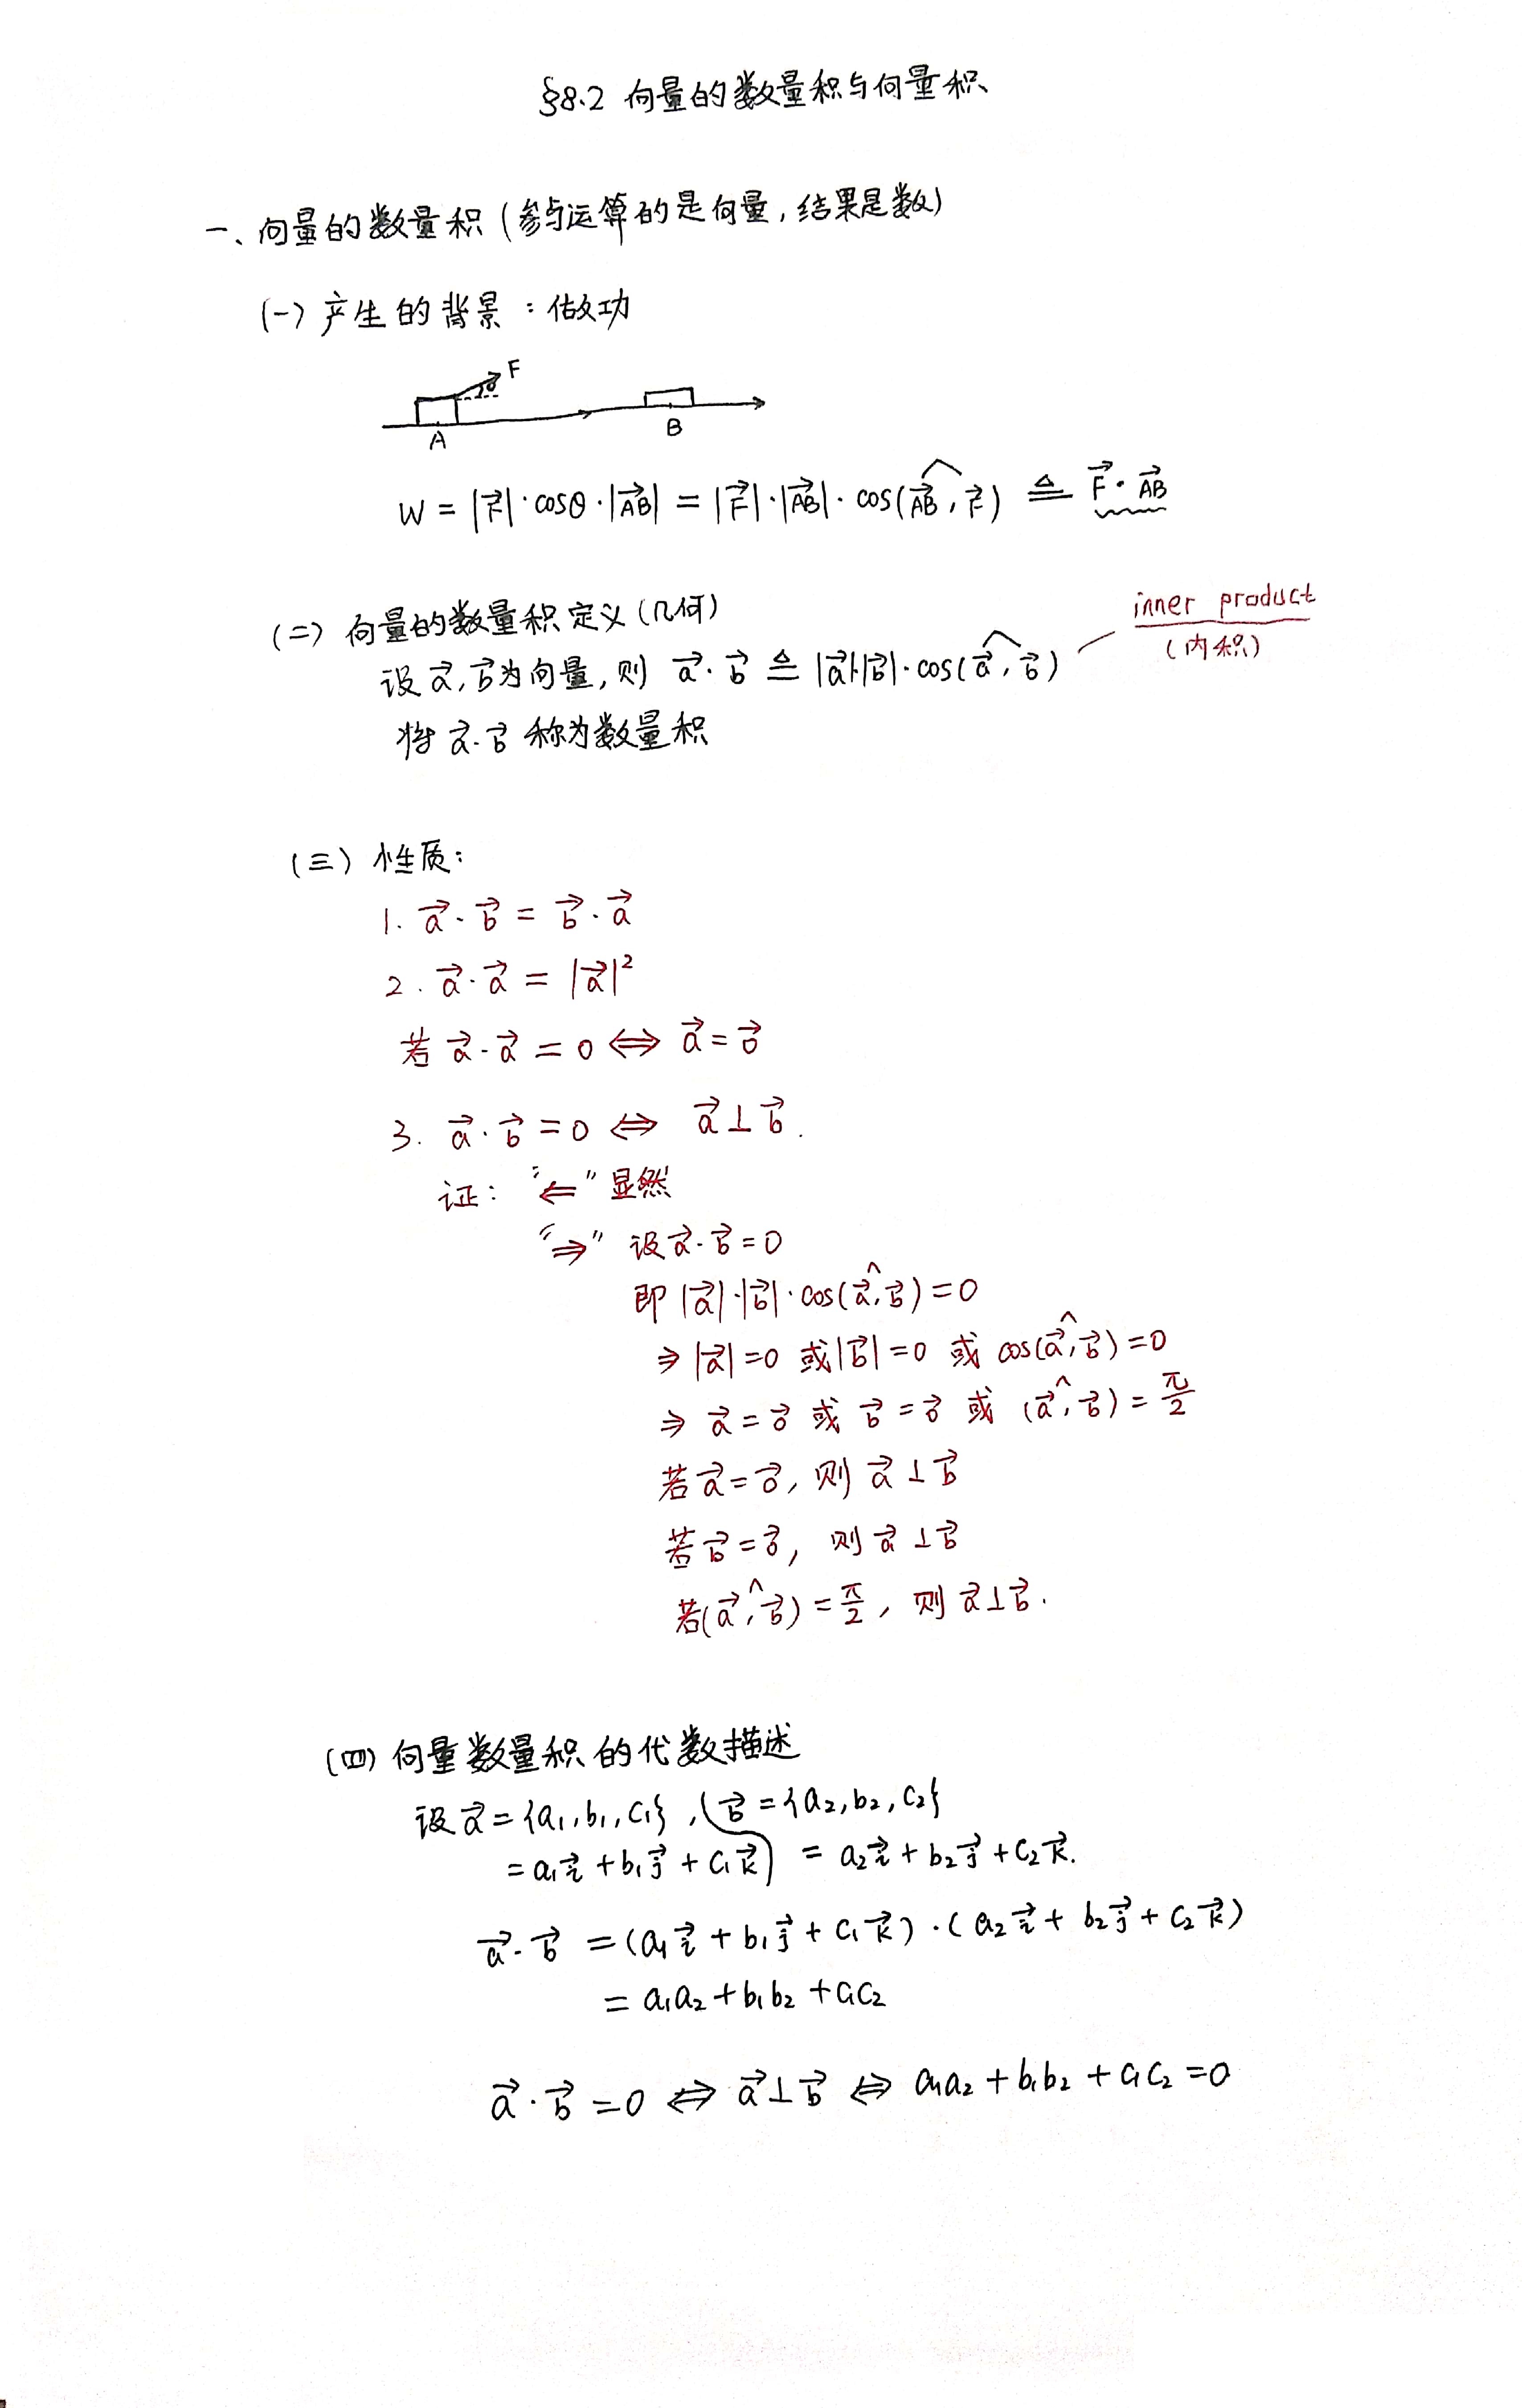 §8.2 向量的数量积与向量积
一、向量的数量积(参与运算的是向量,结果是数)
(一) 产生的背景:做功
F
θ
A
B
W = |F⃗|·cosθ·|AB⃗| = |F⃗|·|AB⃗|·cos(AB⃗^,F⃗) ≜ F⃗·AB⃗
(二) 向量的数量积定义(几何)
inner product
(内积)
设 a⃗, b⃗为向量, 则 a⃗·b⃗ ≜ |a⃗|·|b⃗|·cos(a⃗^,b⃗)
将 a⃗·b⃗ 称为数量积
(三) 性质:
1. a⃗·b⃗ = b⃗·a⃗
2. a⃗·a⃗ = |a⃗|²
若 a⃗·a⃗ = 0 ⇔ a⃗ = 0⃗
3. a⃗·b⃗ = 0 ⇔ a⃗⊥b⃗.
证: “⇐” 显然
“⇒” 设 a⃗·b⃗ = 0
即 |a⃗|·|b⃗|·cos(a⃗^,b⃗) = 0
⇒ |a⃗|=0 或 |b⃗|=0 或 cos(a⃗^,b⃗)=0
⇒ a⃗=0⃗ 或 b⃗=0⃗ 或 (a⃗^,b⃗)=π/2
若 a⃗=0⃗, 则 a⃗⊥b⃗
若 b⃗=0⃗, 则 a⃗⊥b⃗
若(a⃗^,b⃗)=π/2, 则 a⃗⊥b⃗.
(四) 向量数量积的代数描述
设 a⃗={a₁,b₁,c₁}, b⃗={a₂,b₂,c₂}
=a₁i⃗+b₁j⃗+c₁k⃗ = a₂i⃗+b₂j⃗+c₂k⃗.
a⃗·b⃗ =(a₁i⃗+b₁j⃗+c₁k⃗)·(a₂i⃗+b₂j⃗+c₂k⃗)
= a₁a₂+b₁b₂+c₁c₂
a⃗·b⃗=0 ⇔ a⃗⊥b⃗ ⇔ a₁a₂+b₁b₂+c₁c₂=0